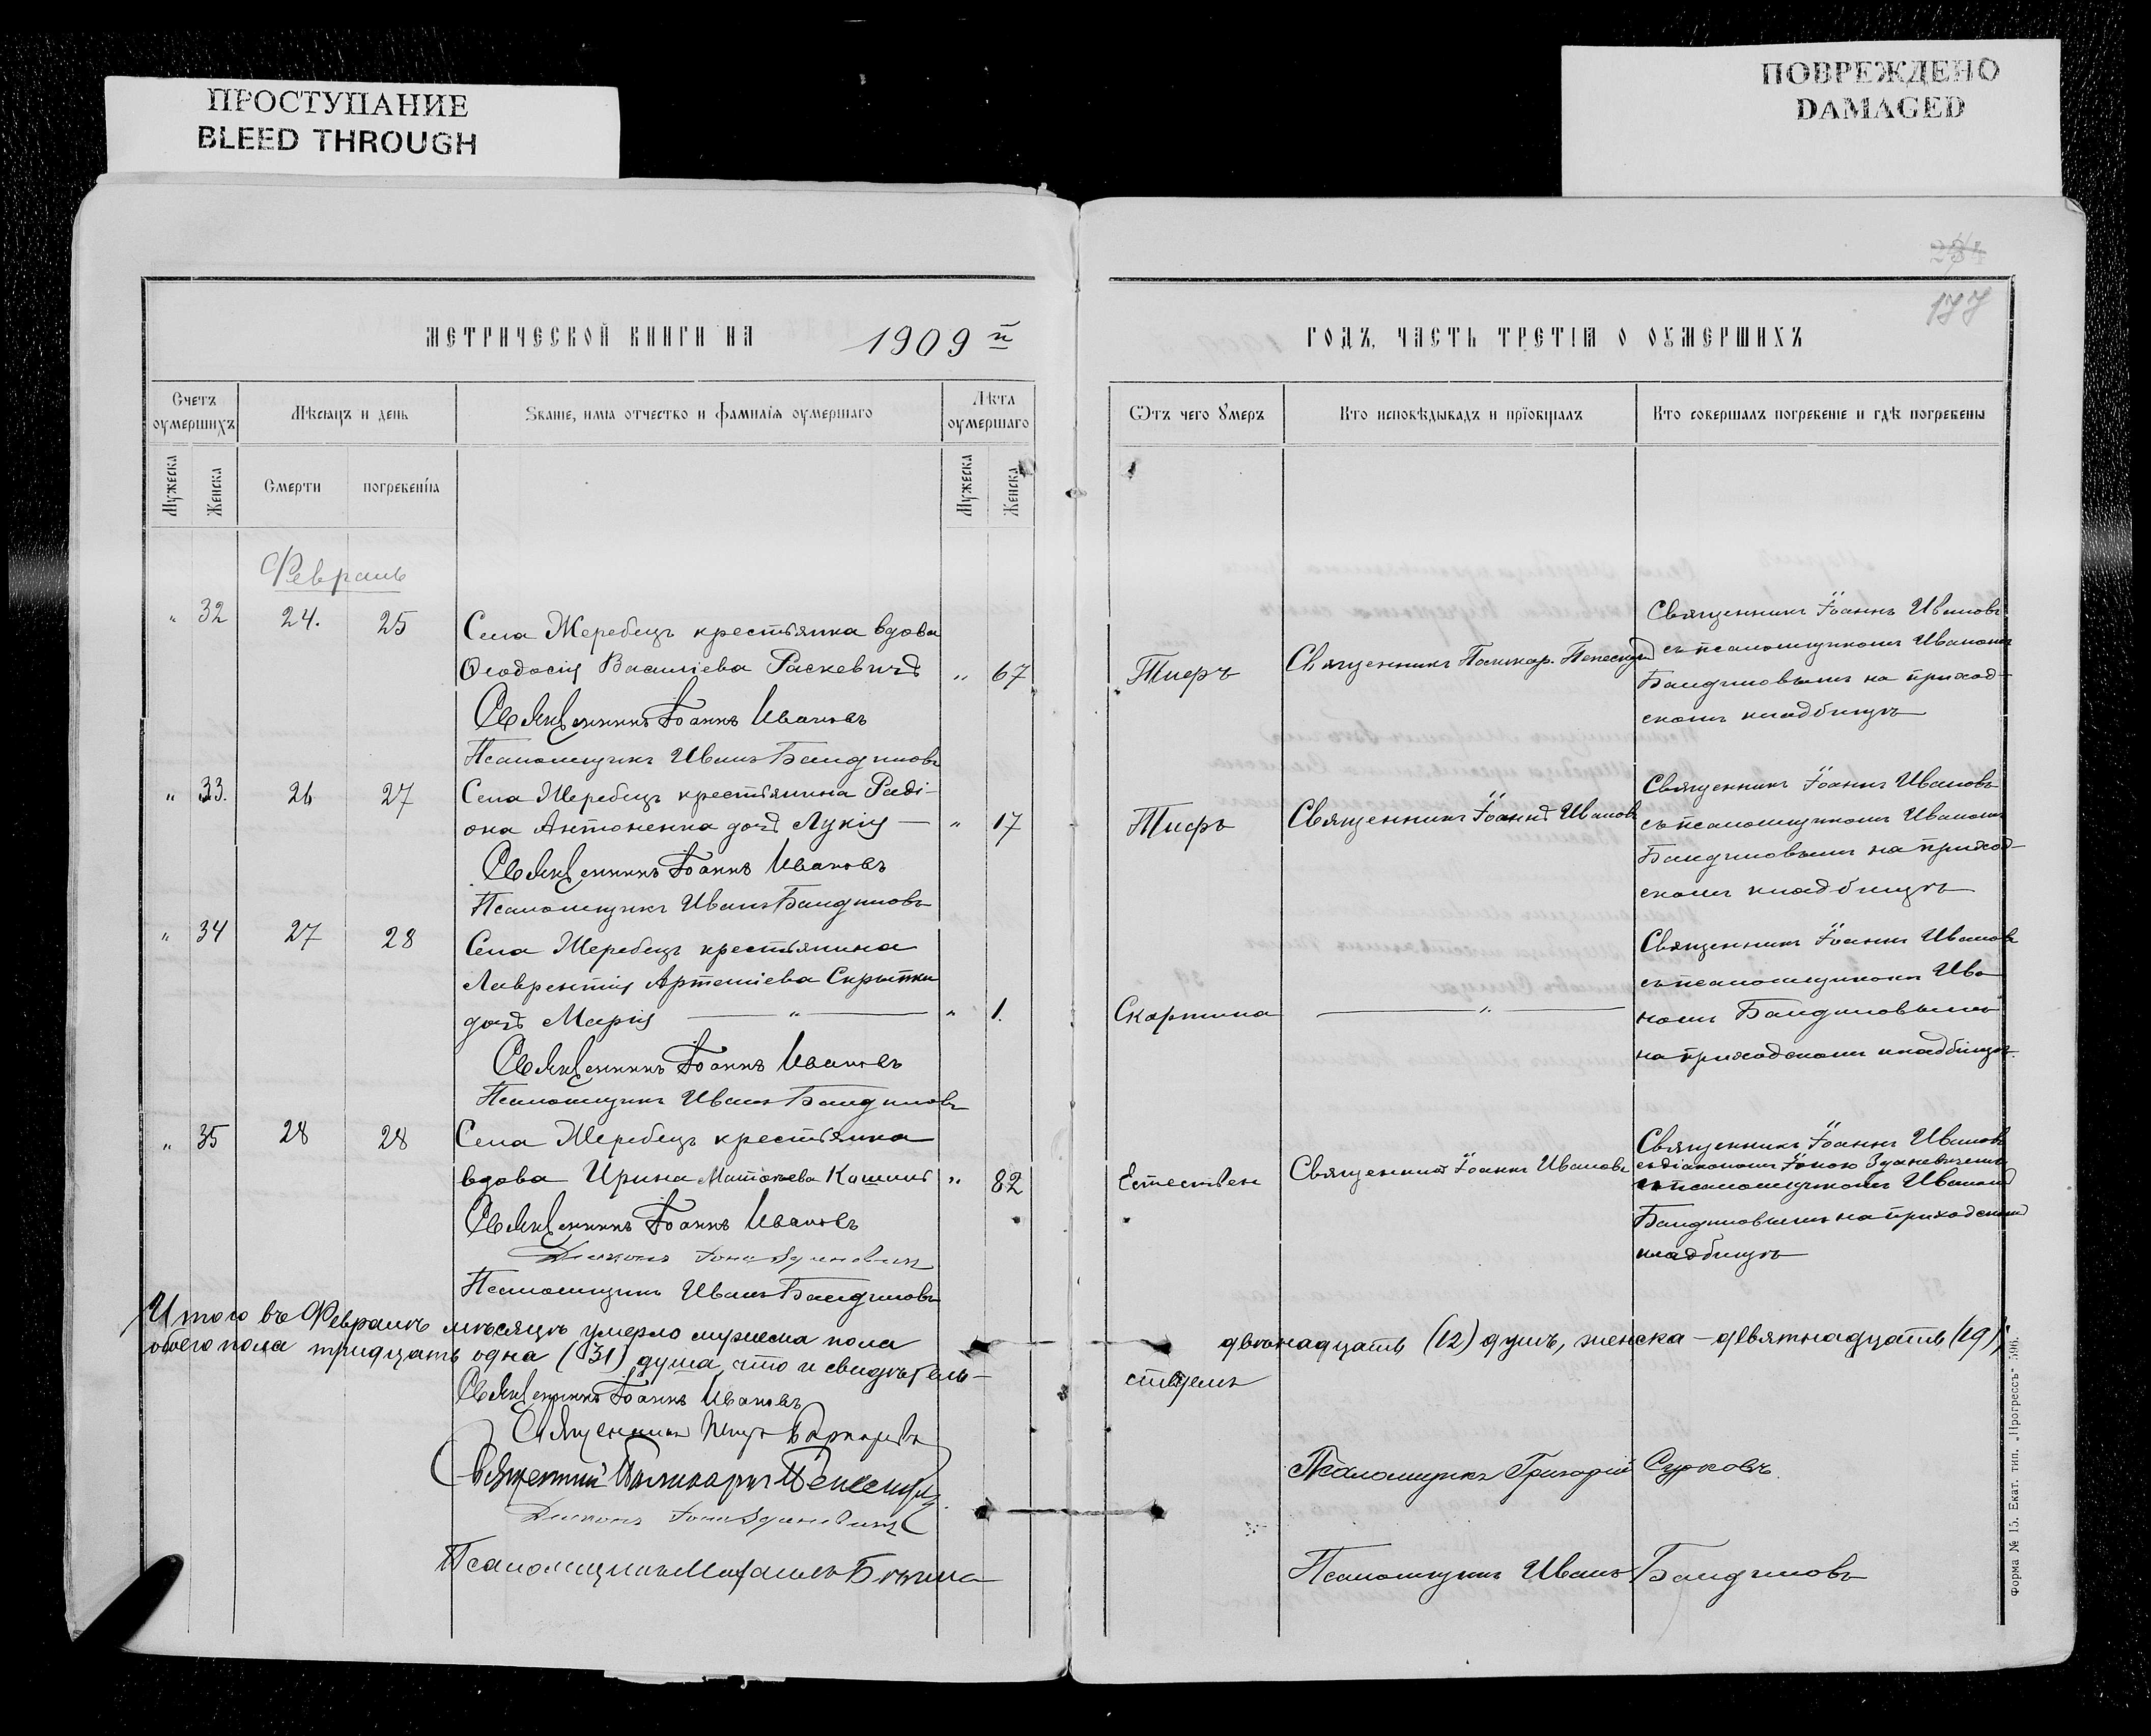 ПРОСТУПАНИЕ
BLEED THROUGH
ПОВРЕЖДЕНО
DAMAGED
177
МЕТРИЧЕСКОЙ КНИГИ НА 1909й
ГОДЪ, ЧАСТЬ ТРЕТІѦ О ОУМЕРШИХЪ
Счетъ оумершихъ
Мѣсяцъ и день
Званіе, имѧ отчество и фамиліѧ оумершаго
Лѣта оумершаго
Ѿтъ чего Умеръ
Кто исповѣдывалъ и пріобщалъ
Кто совершалъ погребеніе и гдѣ погребены
Мужеска
Женска
Смерти
погребеніѧ
Мужеска
Женска
Февраль
" 32 24. 25
Села Жеребецъ крестьянка вдова
Ѳеодосія Василіева Раскевичъ " 67
Священникъ Іоаннъ Ивановъ
Псаломщикъ Иванъ Балдиновъ
Тифъ
Священникъ Поликар.
Священникъ Іоаннъ Ивановъ
съ псаломщикомъ Иваномъ
Балдиновымъ на приход-
скомъ кладбищѣ
" 33. 26 27
Села Жеребецъ крестьянина Раді-
она Антоненка дочь Лукія — " 17
Священникъ Іоаннъ Ивановъ
Псаломщикъ Иванъ Балдиновъ
Тифъ
Священникъ Іоаннъ Ивановъ
Священникъ Іоаннъ Ивановъ
съ псаломщикомъ Иваномъ
Балдиновымъ на приход-
скомъ кладбищѣ
" 34 27 28
Села Жеребецъ крестьянина
Лаврентія Артеміева Скрыпки
дочь Марія — " — " 1.
Священникъ Іоаннъ Ивановъ
Псаломщикъ Иванъ Балдиновъ
Скарлтина
— " —
Священникъ Іоаннъ Ивановъ
съ псаломщикомъ Ива
номъ Балдиновымъ
на приходскомъ кладбищѣ
" 35 28 28
Села Жеребецъ крестьянка
вдова Ирина Матѳіева " 82
Священникъ Іоаннъ Ивановъ
Діаконъ Іона Здановичъ
Псаломщикъ Иванъ Балдиновъ
Естествен
Священникъ Іоаннъ Ивановъ
Священникъ Іоаннъ Ивановъ
съ діакономъ Іоною Здановичемъ
и псаломщикомъ Иваномъ
Балдиновымъ на приходскомъ
кладбищѣ
Итого въ Февралѣ мѣсяцѣ умерло мужеска пола двѣнадцать (12) душъ, женска — девятнадцать (19),
обоего пола тридцать одна (31) душа, что и свидѣтель-
ствуемъ
Священникъ Іоаннъ Ивановъ
Священникъ Петръ
Священникъ Поликарпъ
Діаконъ Іона Здановичъ
Псаломщикъ Григорій Сурковъ.
Псаломщикъ
Псаломщикъ Иванъ Балдиновъ
Форма № 15. Екат. тип. „Прогрессъ" 596.